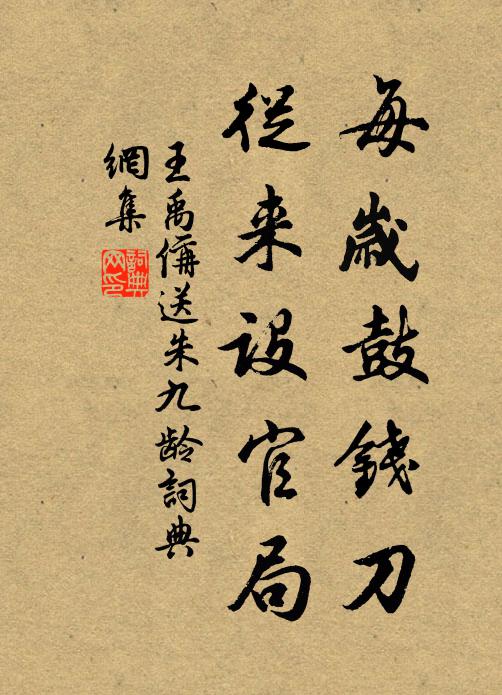 每歲鼓錢刀
從來設官局
王禹偁送朱九齡詞典
網集
詞典网印